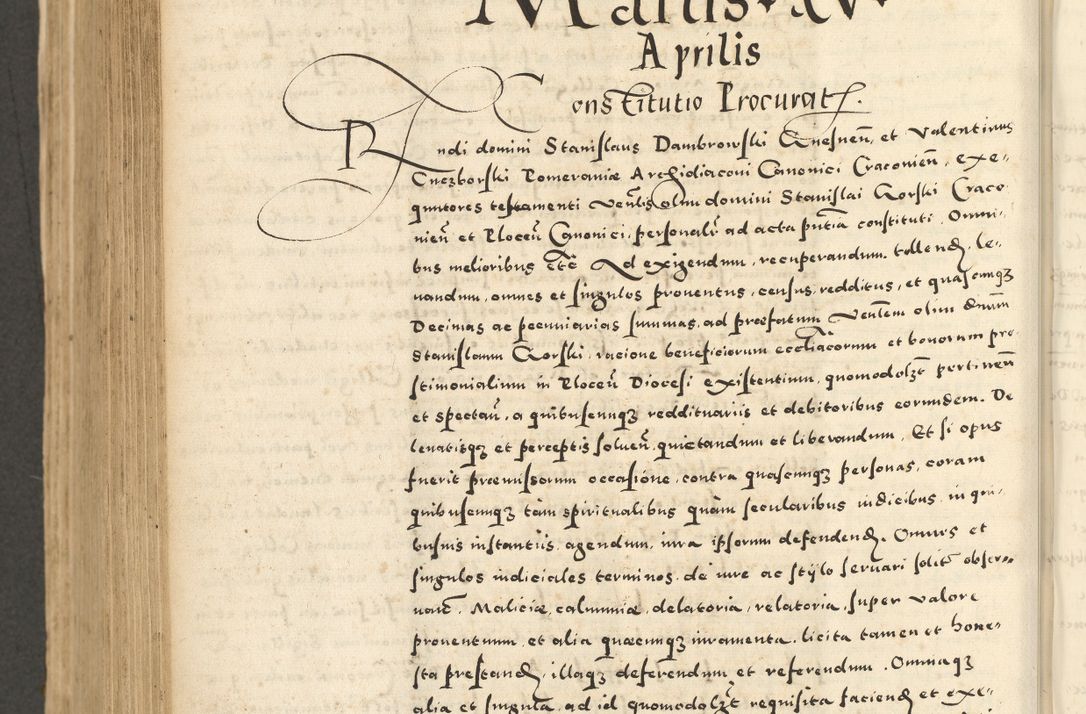 Martis XV
Aprilis
Constitutio Procurat.
Rndi domini Stanislaus Dambrowski Gnesneñ, et Valentinus
Cneszborski Pomeraniæ Archidiaconi Canonici Craconieñ, exe-
quutores testamenti Veñlis olim domini Stanislai Gorski Craco
nieñ et Ploceñ Canonici, personalr ad acta pñtia constituti. Omni-
bus melioribus etc̃ Ad exigendum, recuperandum, tollend, le-
uandum, omnes et singulos prouentus, census, redditus, et quascunqʒ
Decimas ac pecuniarias summas, ad præfatum Venlem olim dnum
Stanislaum Gorski, racione beneficiorum eccliacorum et bonorum pre-
stimonialium in Ploceñ Diocesi existentium, quomodolʒt pertineñ
et spectañ, a quibuscunqʒ reddituariis et debitoribus eorumdem. De
leuatisqʒ et perceptis solueñ, quietandum et liberandum, Et si opus
fuerit præmissorum occasione, contra quascunqʒ personas, coram
quibuscunqʒ tam spiritualibus quàm secularibus iudicibus, in qui-
busuis instantiis, agendum, iura ipsorum defendend. Omnes et
singulos iudiciales terminos, de iure ac stylo seruari solit̃ obser-
uañ. Maliciæ, calumniæ, delatoria, relatoria, super valore
prouentuum, et alia quæcunqʒ iuramenta, licita tamen et hone-
sta prestand, illaqʒ deferendum et referendum. Omniaqʒ
alia et singula, ad id quomodolʒt requisita faciend et exe-